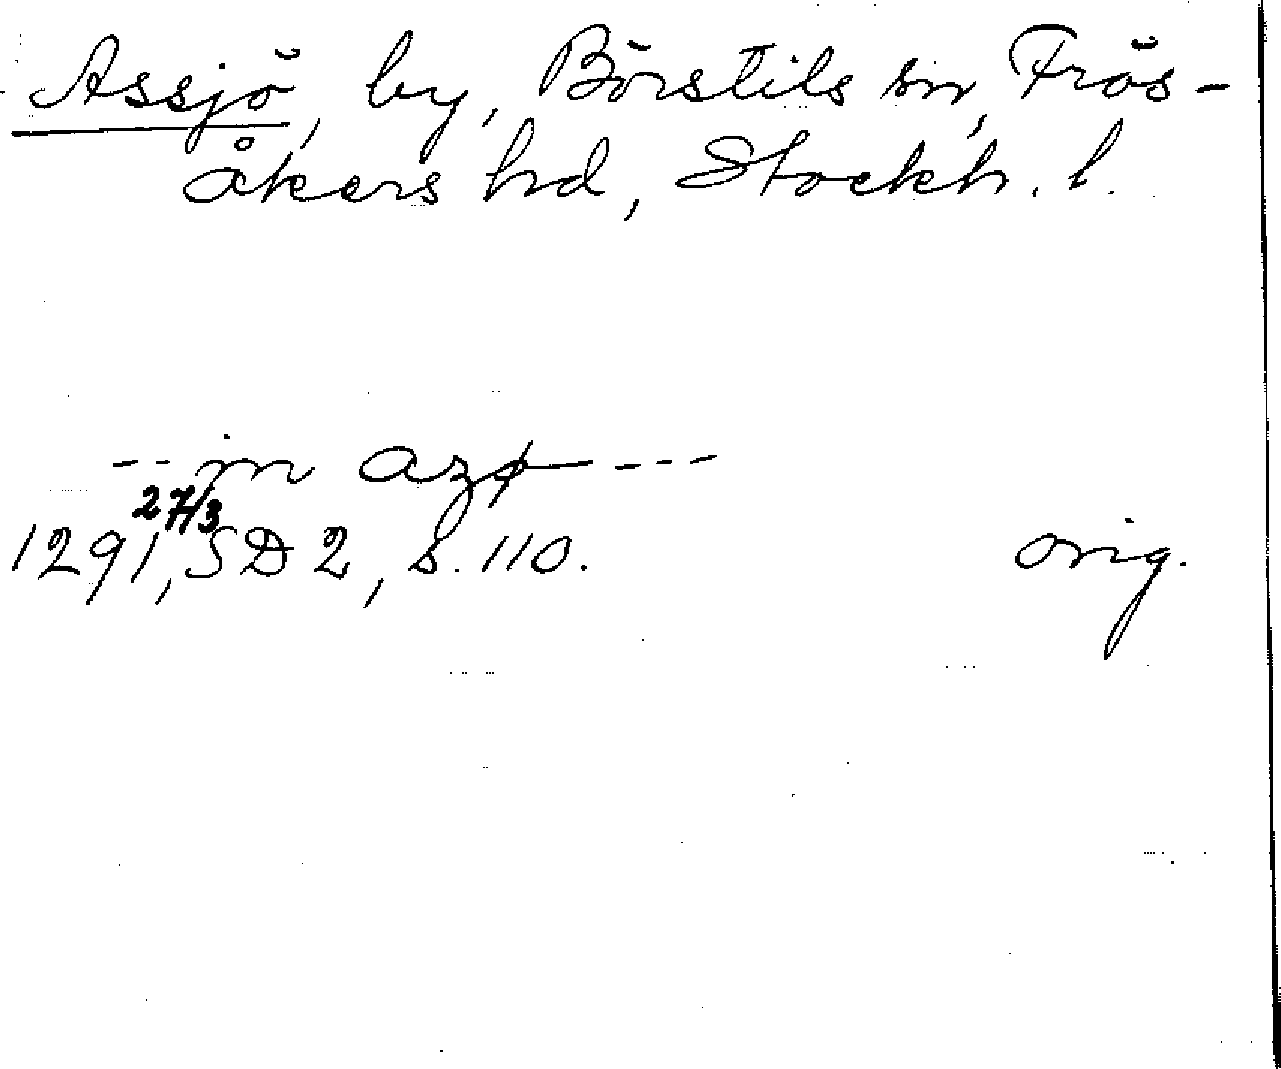 Assjö, by, Börstils sn, Frös-
åkers hd, Stockh. l.
-- in azø ---
27/3
1291, SD 2, s. 110. orig.